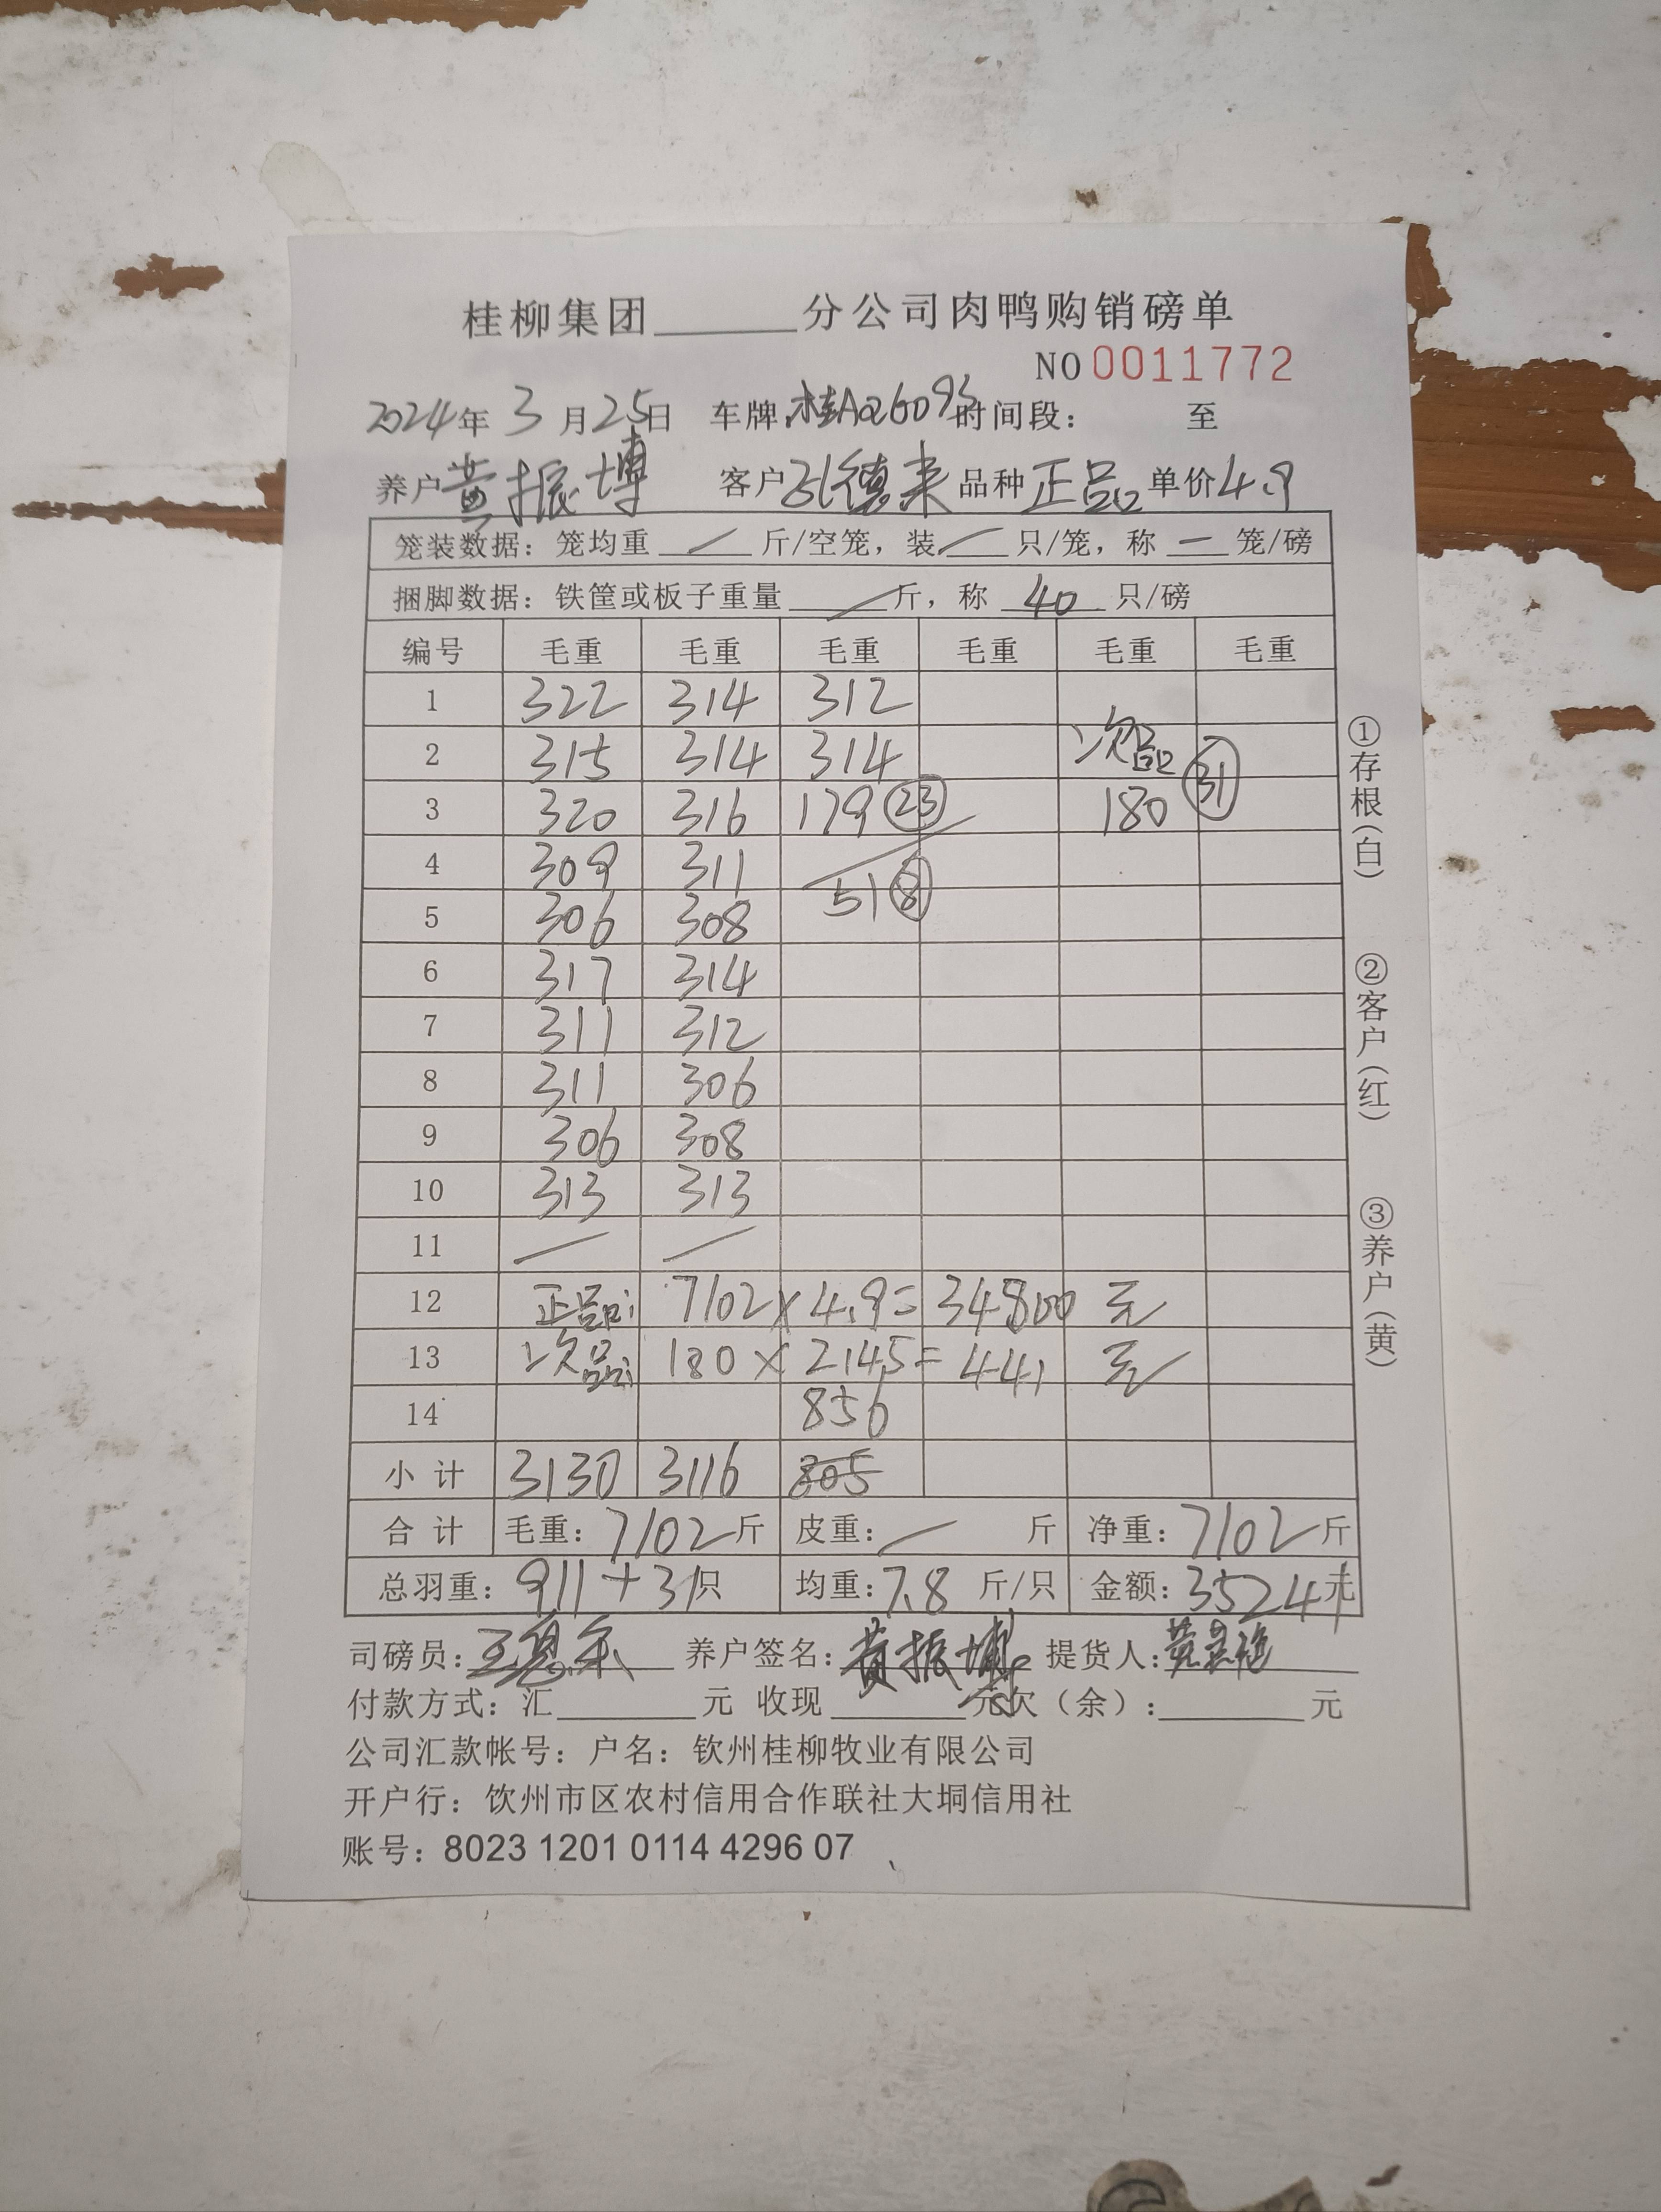 桂柳集团______分公司肉鸭购销磅单
NO 0011772
2024年 3 月 25日 车牌:桂AQ6093 时间段: 至
养户 黄振博 客户 张德来 品种 正品 单价 4.9
笼装数据: 笼均重 — 斤/空笼, 装 — 只/笼, 称 — 笼/磅
捆脚数据: 铁筐或板子重量 — 斤, 称 40 只/磅
编号 毛重 毛重 毛重 毛重 毛重 毛重
1 322 314 312
2 315 314 314 次品
3 320 316 179 23 180 31
4 309 311
5 306 308 51 8
6 317 314
7 311 312
8 311 306
9 306 308
10 313 313
11 — —
12 正品: 7102 × 4.9 = 34800 元
13 次品: 180 × 2.45 = 441 元
14 856
小 计 3130 3116 805
合 计 毛重: 7102 斤 皮重: — 斤 净重: 7102 斤
总羽重: 911 + 31 只 均重: 7.8 斤/只 金额: 35241 元
司磅员: 养户签名: 黄振博 提货人: 黄
付款方式: 汇______元 收现______元欠（余）:______元
公司汇款帐号: 户名: 钦州桂柳牧业有限公司
开户行: 钦州市区农村信用合作联社大垌信用社
账号: 8023 1201 0114 4296 07
①存根(白)
②客户(红)
③养户(黄)